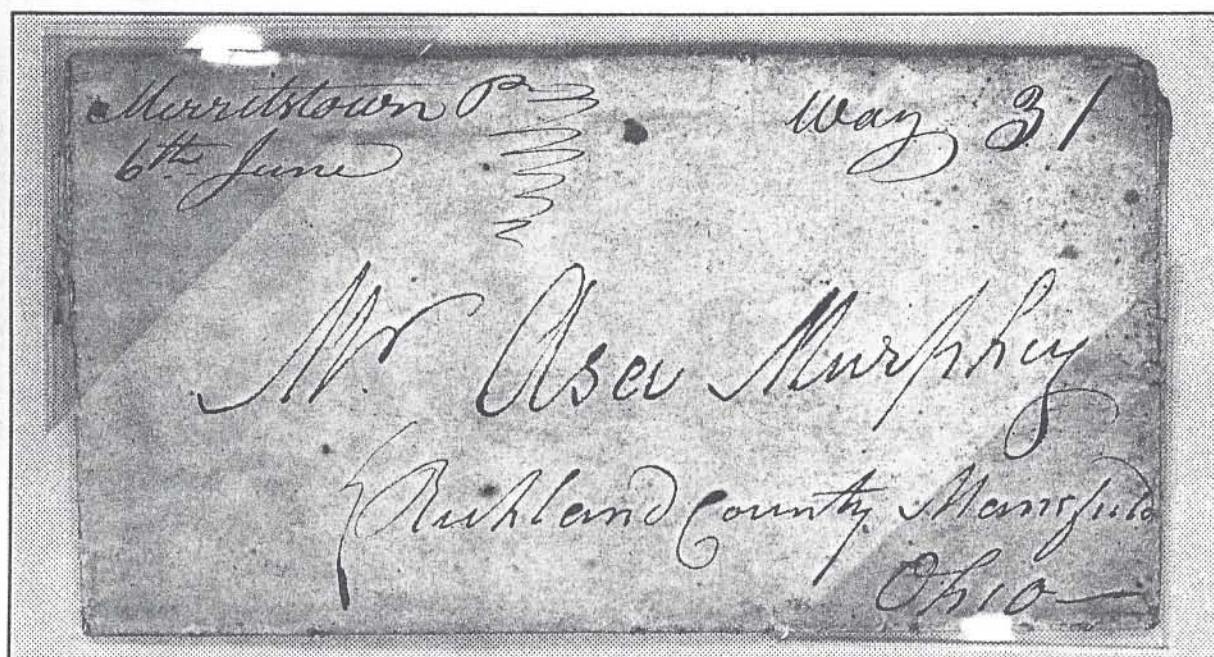 Merritstown Pa
Way 31
6th June
Mr. Asa Murphey
Richland County Mansfield
Ohio